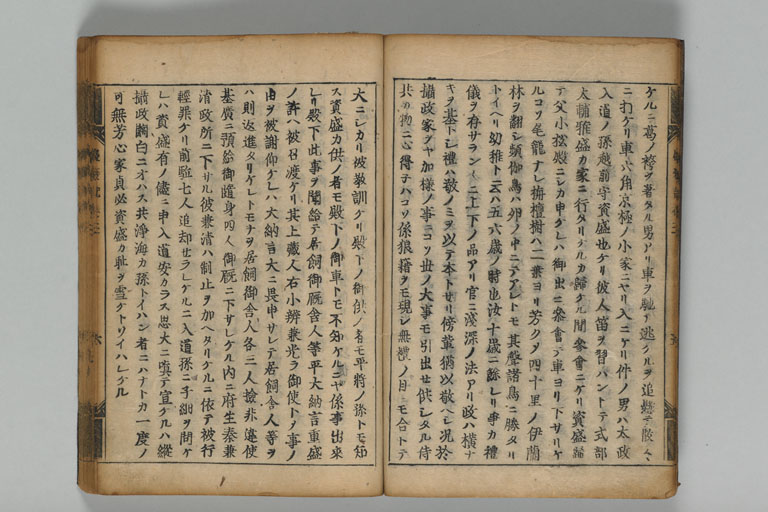 ケルニ葛ノ袴ヲ著タル男アリ車ヲ馳テ逃ケルヲ追懸テ散々
ニ打ケリ車六角京極ノ小家ニヤリ入ニケリ件ノ男ハ太政
入道ノ孫越前守資盛也ケリ彼人笛ヲ習ハントテ式部
太輔雅盛カ家ニ行タリケルカ歸ケル間參會ニケリ資盛歸
テ父小松殿ニシカ申ケレハ御出ニ參會テ車ヨリ下サリケ
ルコソ尾籠ナレ栴檀樹ハ二葉ヨリ芳クメ四十里ノ伊蘭
林ヲ翻シ頻伽鳥ハ卵ノ中ニテアレトモ其聲諸鳥ニ勝タリ
トイヘリ幼稚トテ云ハ五六歳ノ時也汝十歳ニ餘レリ爭カ禮
儀ヲ存サラン上下ノ品アリ官ニ淺深ノ法アリ政ハ横ナ
キヲ基トシ禮ハ敬ノミヲ以テ本トサリ傍輩猶以敬ヘシ况於
攝政家ヲヤ加樣ノ事ニコソ世ノ大事モ引出セ供シタル侍
共ノ物ニ心得テハコソ係狼藉ヲモ現シ無禮ノ目ニモ合トテ
大ニシカリ彼敎訓ケリ殿下ノ御供ノ者モ平將ノ孫トモ知
ス資盛カ供ノ者モ殿下ノ御車トモ不知ケルニヤ係事出來
レリ殿下此事ヲ聞給テ居飼御厩舎人等平大納言重盛
ノ許ヘ被召渡ケリ其上藏人右小辨兼光ヲ御使トメ事ノ
由ヲ被謝仰ケレハ大納言大ニ畏申サレテ居飼舍人等ヲ
ハ則返進タリケレトモナヲ居飼御舍人各三人檢非違使
基廣ニ預給御隨身四人御厩ニ下サレケル内ニ府生秦兼
清政所ニ下サル彼兼清ハ制止ヲ加ヘタリケルニ依テ被行
輕罪ケリ前駈七人追却セラレケルニ入道孫ニ子細ヲ問ケ
レハ資盛有ノ儘ニ申入道安カラス思大ニ嗔テ宣ケルハ縱
攝政關白ニオハス共淨海カ孫トイハン者ニハナトカ一度ノ
可無芳心家貞必資盛カ耻ヲ雪ケトソイハレケル